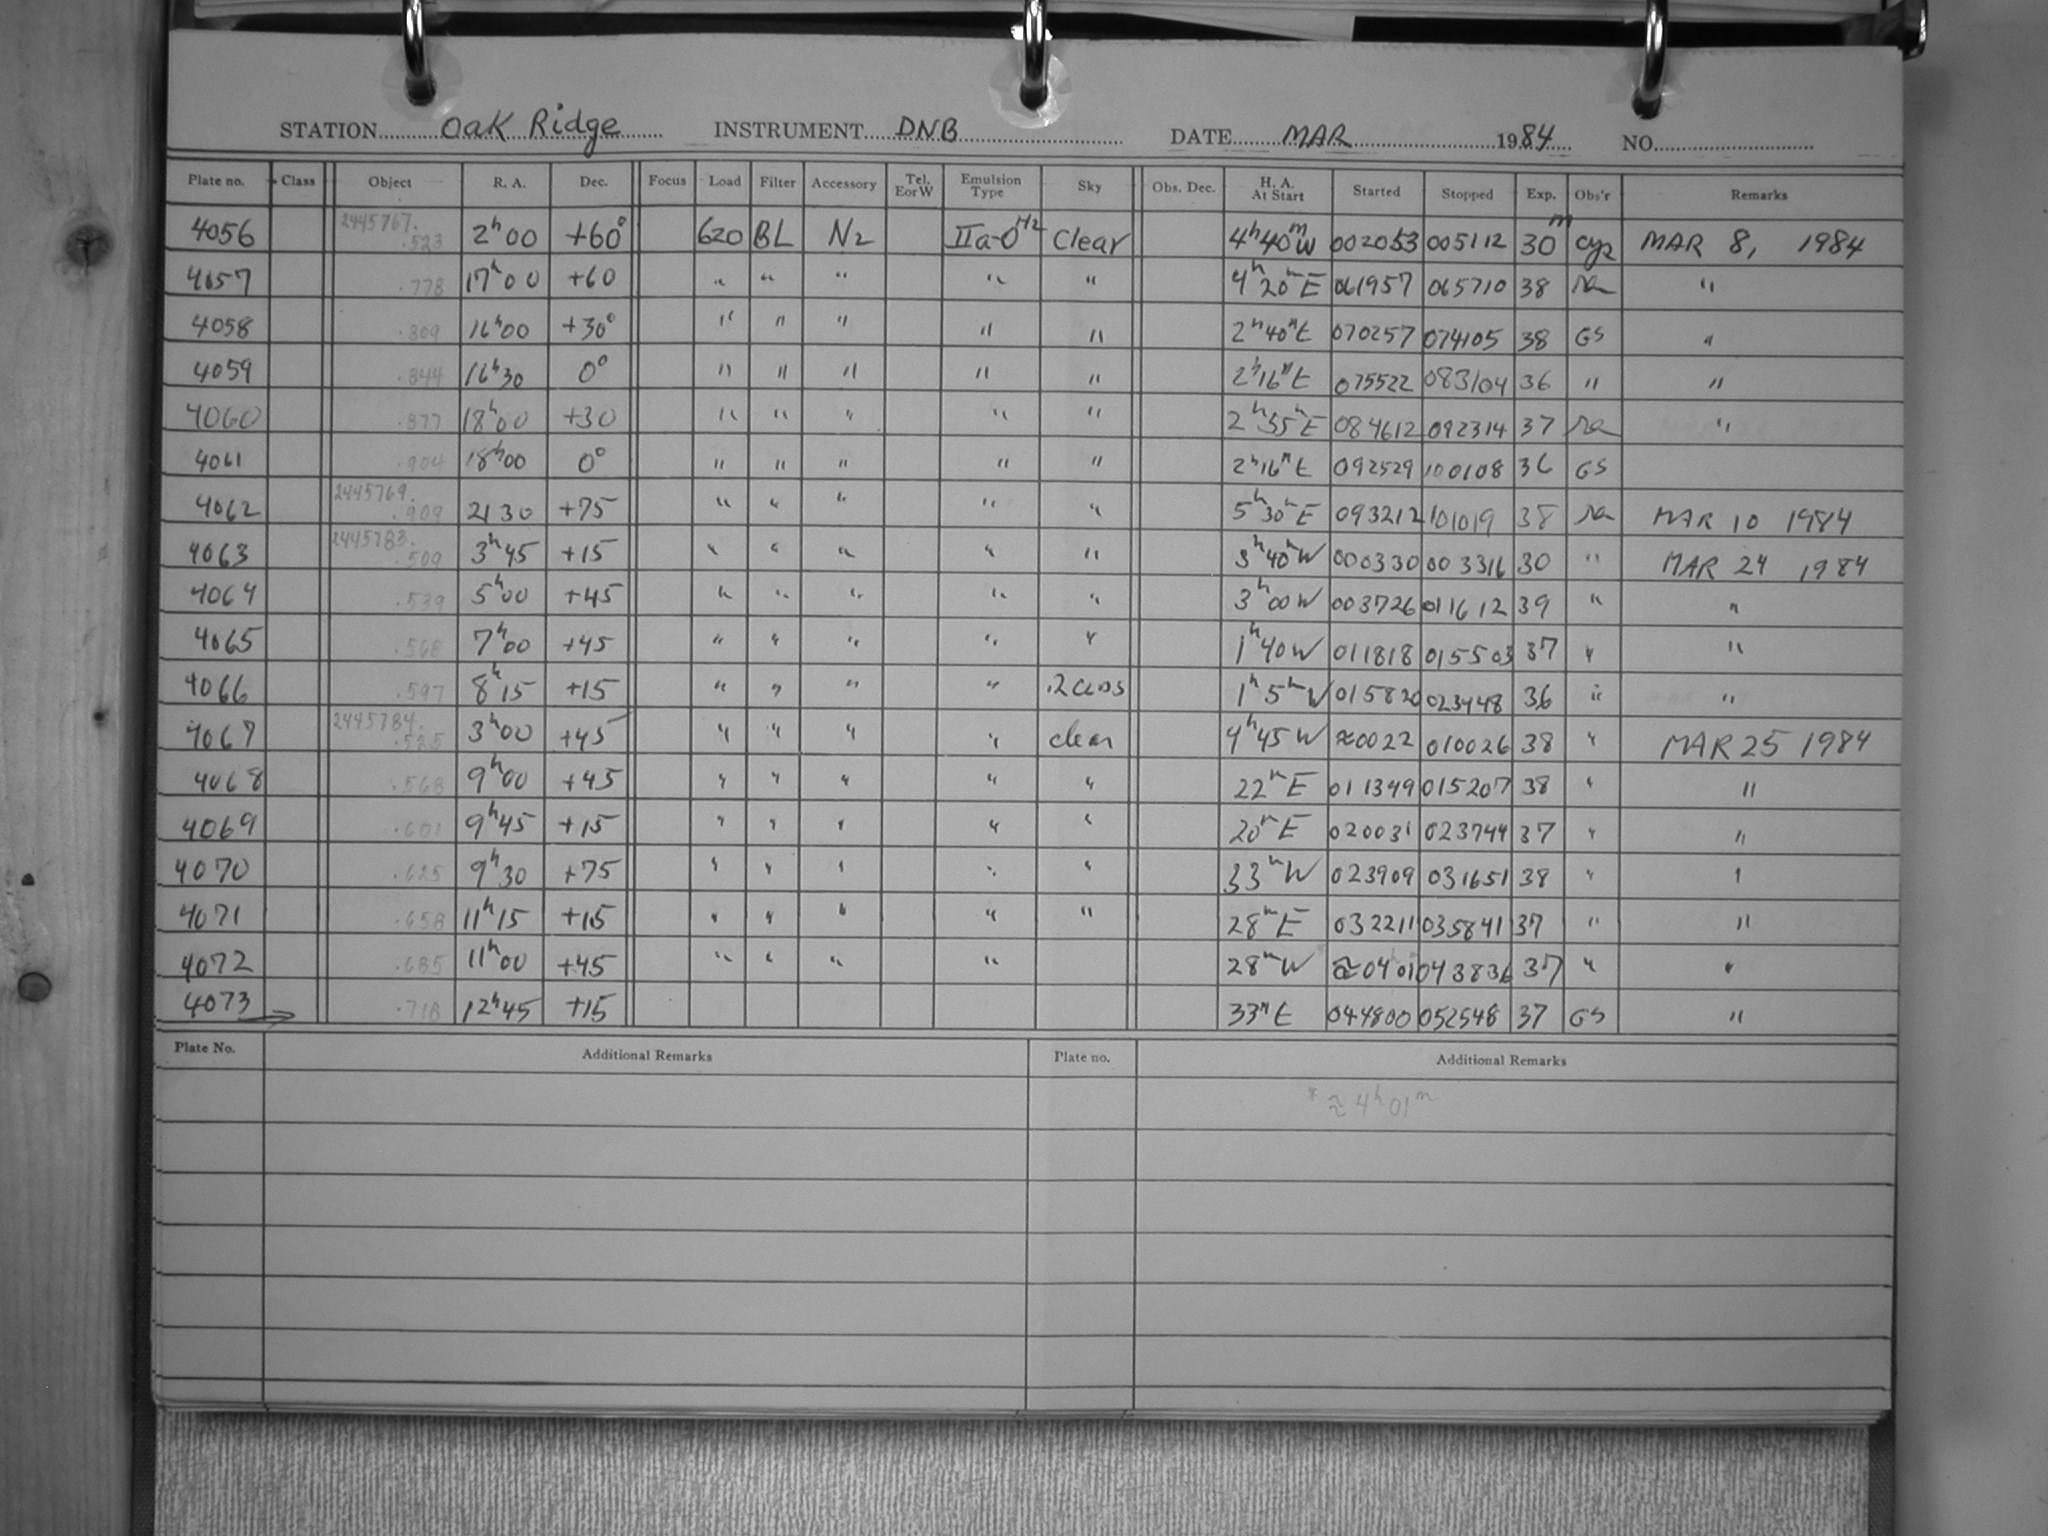 STATION Oak Ridge INSTRUMENT DNB DATE MAR 1984 NO.
Plate no. Class Object R. A. Dec. Focus Load Filter Accessory Tel. E or W Emulsion Type Sky Obs. Dec. H. A. At Start Started Stopped Exp. Obs'r Remarks
4056 2445767. .523 2h00 +60° 620 BL N2 IIa-O H2 Clear 4h40mW 002053 005112 30m MAR 8, 1984
4057 .778 17h00 +60 " " " " " 4h20mE 061957 065710 38 "
4058 .809 16h00 +30° " " " " " 2h40mE 070257 074105 38 GS "
4059 .844 16h30 0° " " " " " 2h16mE 075522 083104 36 " "
4060 .877 18h00 +30 " " " " " 2h55mE 084612 092314 37 "
4061 .904 18h00 0° " " " " " 2h16mE 092529 100108 36 GS
4062 2445769. .909 21 30 +75 " " " " " 5h30mE 093212 101019 38 MAR 10 1984
4063 2445783. .509 3h45 +15 " " " " " 3h40mW 000330 003316 30 " MAR 24 1984
4064 .539 5h00 +45 " " " " " 3h00W 003726 011612 39 " "
4065 .568 7h00 +45 " " " " " 1h40W 011818 015503 37 " "
4066 .597 8h15 +15 " " " " .2 CLDS 1h5mW 015820 023448 36 " "
4067 2445784. .525 3h00 +45 " " " " clear 4h45W ≈0022 010026 38 " MAR 25 1984
4068 .568 9h00 +45 " " " " " 22mE 011349 015207 38 " "
4069 .601 9h45 +15 " " " " " 20mE 020031 023744 37 " "
4070 .625 9h30 +75 " " " " " 33mW 023909 031651 38 " "
4071 .658 11h15 +15 " " " " " 28mE 032211 035841 37 " "
4072 .685 11h00 +45 " " " " 28mW * ≈0401 043836 37 " "
4073 → .718 12h45 +15 33mE 044800 052548 37 GS "
Plate No. Additional Remarks Plate no. Additional Remarks
* ≈ 4h01m